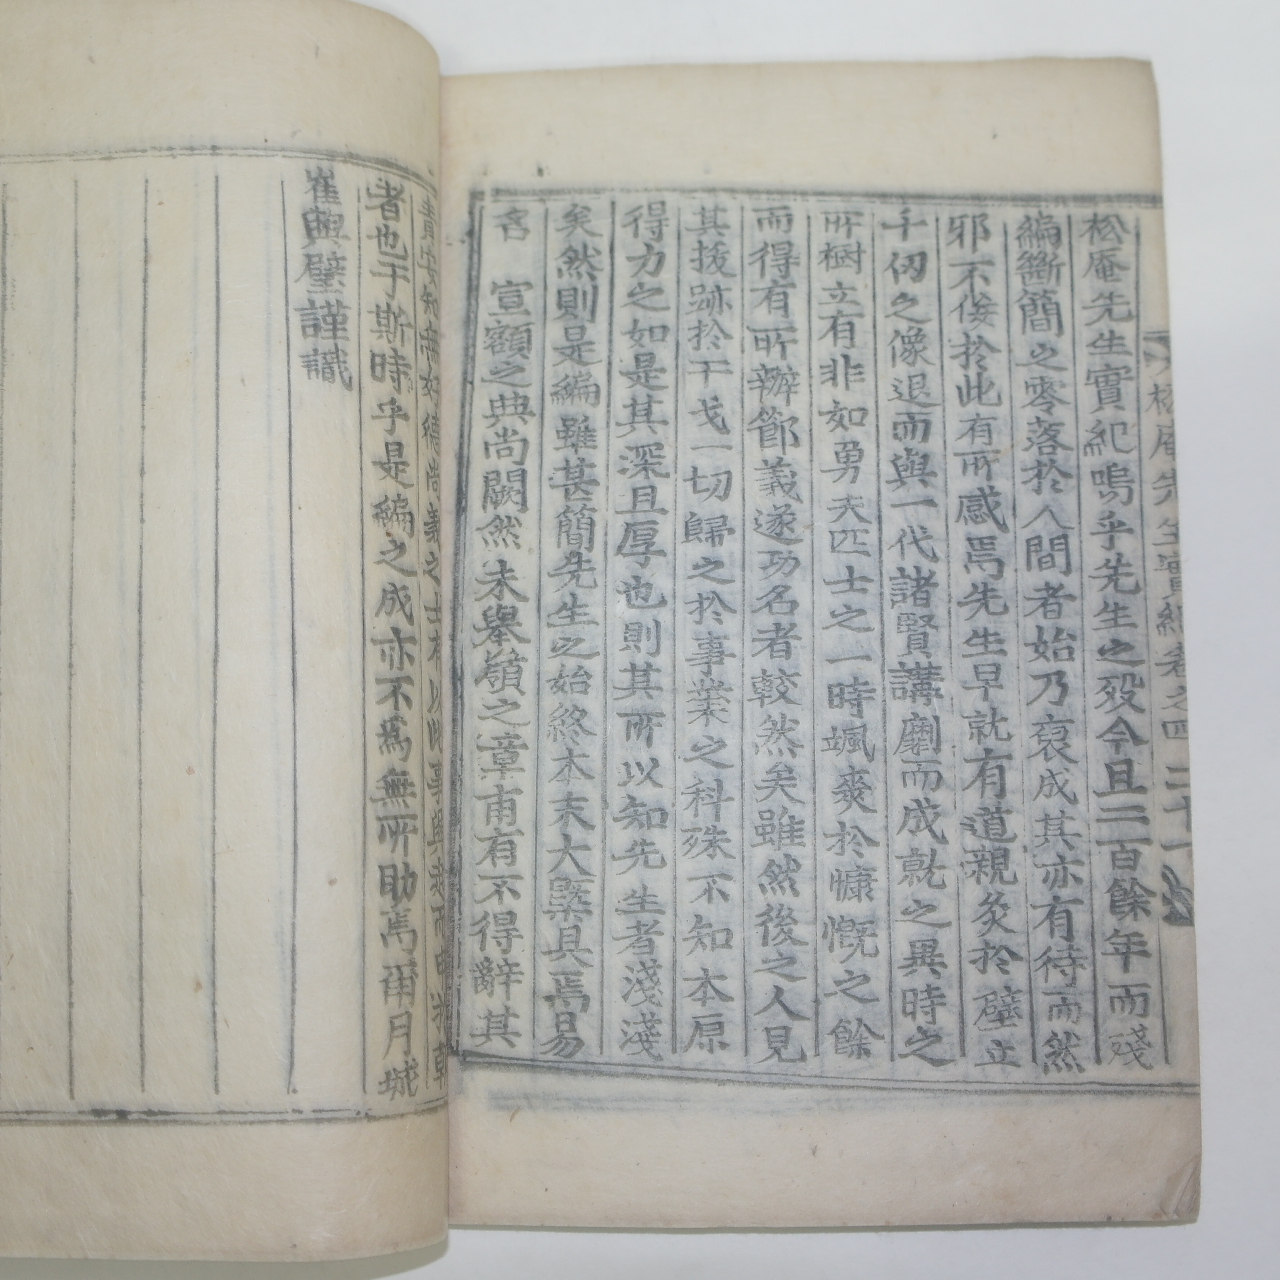 松庵先生實紀卷之四 三十一
松庵先生實紀嗚乎先生之歿今且三百餘年而殘
編斷簡之零落於人間者始乃裒成其亦有待而然
邪不佞於此有所感焉先生早就有道親炙於壁立
千仞之像退而與一代諸賢講劘而成就之異時之
所樹立有非如勇夫匹士之一時颯爽於慷慨之餘
而得有所辦節義遂功名者較然矣雖然後之人見
其拔跡於干戈一切歸之於事業之科殊不知本原
得力之如是其深且厚也則其所以知先生者淺淺
矣然則是編雖甚簡先生之始終本末大槩具焉易
名 宣額之典尚闕然未擧嶺之章甫有不得辭其
責安知無好德尚義之士有以此事與起而
者也于斯時乎是編之成亦不爲無所助焉爾月城
崔興璧謹識